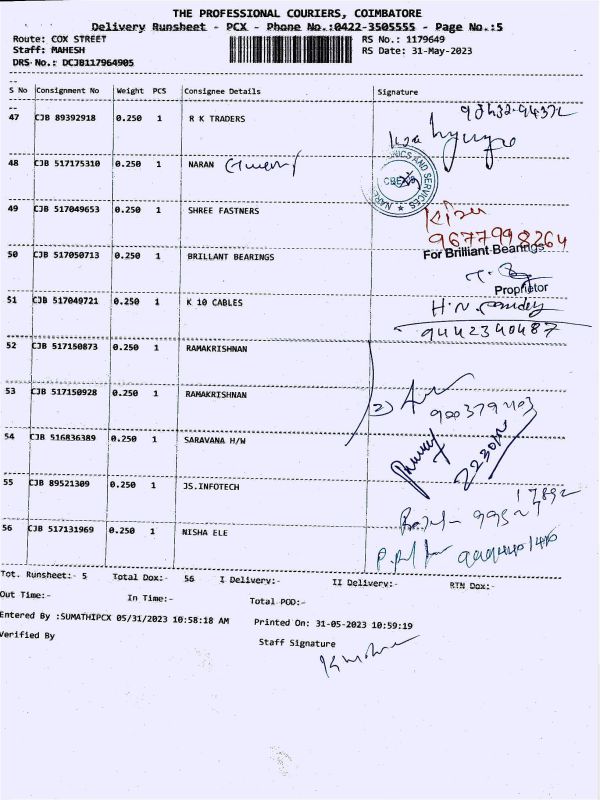 THE PROFESSIONAL COURIERS, COIMBATORE
Delivery Runsheet - PCX - Phone No.:0422-3505555 - Page No.:5
Route: COX STREET RS No.: 1179649
Staff: MAHESH RS Date: 31-May-2023
DRS No.: DCJB117964905
S No Consignment No Weight PCS Consignee Details Signature
47 CJB 89392918 0.250 1 R K TRADERS
48 CJB 517175310 0.250 1 NARAN
49 CJB 517049653 0.250 1 SHREE FASTNERS
9677998264
50 CJB 517050713 0.250 1 BRILLANT BEARINGS For Brilliant Bearings
Proprietor
51 CJB 517049721 0.250 1 K 10 CABLES
9442340487
52 CJB 517150873 0.250 1 RAMAKRISHNAN
53 CJB 517150928 0.250 1 RAMAKRISHNAN
54 CJB 516836389 0.250 1 SARAVANA H/W
55 CJB 89521309 0.250 1 JS.INFOTECH
56 CJB 517131969 0.250 1 NISHA ELE
Tot. Runsheet:- 5 Total Dox:- 56 I Delivery:- II Delivery:- RTN Dox:-
Out Time:- In Time:- Total POD:-
Entered By :SUMATHIPCX 05/31/2023 10:58:18 AM Printed On: 31-05-2023 10:59:19
Verified By Staff Signature